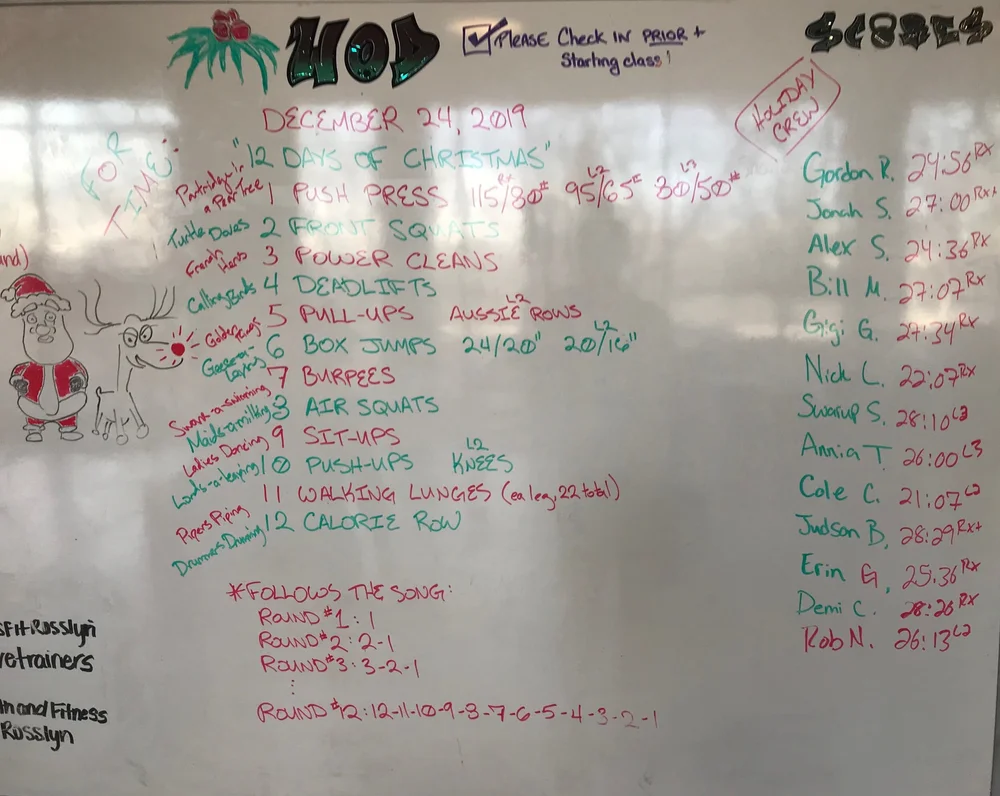 WOD
☑ PLEASE Check IN PRIOR +
Starting class!
SCORES
HOLIDAY
CREW
DECEMBER 24, 2019
FOR
TIME:
"12 DAYS OF CHRISTMAS"
Partridge in
a Pear Tree
1 PUSH PRESS 115/80# RX 95/65# L2 30/50# L3
Turtle Doves 2 FRONT SQUATS
French Hens 3 POWER CLEANS
Calling Birds 4 DEADLIFTS
Golden Rings 5 PULL-UPS AUSSIE ROWS L2
Geese-a-Laying 6 BOX JUMPS 24/20" 20/16" L2
Swans-a-swimming 7 BURPEES
Maids-a-milking 8 AIR SQUATS
Ladies Dancing 9 SIT-UPS
Lords-a-leaping 10 PUSH-UPS KNEES L2
Pipers Piping 11 WALKING LUNGES (ea leg, 22 total)
Drummers Drumming 12 CALORIE ROW
*FOLLOWS THE SONG:
ROUND #1: 1
ROUND #2: 2-1
ROUND #3: 3-2-1
⋮
ROUND #12: 12-11-10-9-8-7-6-5-4-3-2-1
Gordon R. 24:56 RX
Jonah S. 27:00 RX+
Alex S. 24:36 RX
Bill M. 27:07 RX
Gigi G. 27:34 RX
Nick L. 22:07 RX
Swarup S. 28:10 L3
Annia T. 26:00 L3
Cole C. 21:07 L2
Judson B. 28:29 RX+
Erin G. 25:36 RX
Demi C. 28:26 RX
Rob N. 26:13 L2
and)
sFitRosslyn
retrainers
In and Fitness
Rosslyn